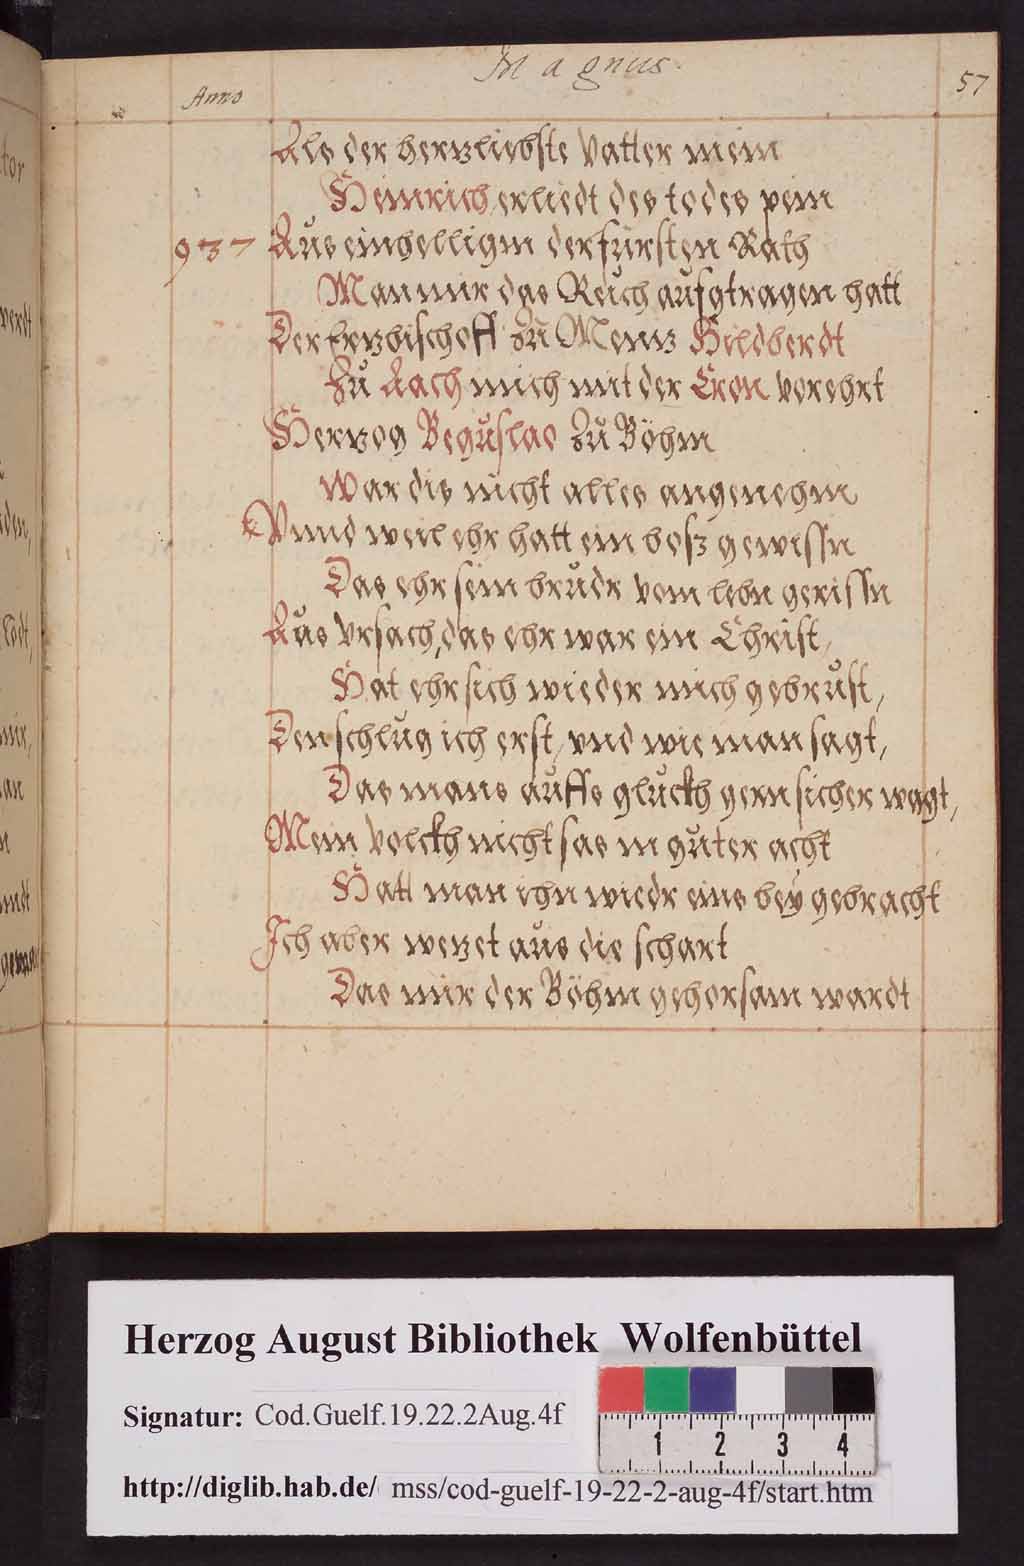 Magnus.
57
Anno
Als der hertzliebste Vatter mein
Heinrich, erliedt des todes pein
937 Aus einhelligm der fürsten Rath
Man mir das Reich aufgtragen hatt
Der Ertzbischoff zu Mentz Hildberdt
Zu Aach mich mit der Cron verehrt
Hertzog Boguslao zu Böhm
War dis nicht alles angenehm
Vnnd weil ehr hatt ein bosz gewissn
Das ehr sein brudr vom lebn gerissn
Aus Vrsach, das ehr war ein Christ,
Hat ehr sich wieder mich gebrust,
Den schlug ich erst, vnd wie man sagt,
Das mans auffs gluckh gern sicher wagt,
Mein Volckh nicht sas in guter acht
Hatt man ihn wiedr eins bey gebracht
Ich aber wetzet aus die schart
Das mir der Böhm gehorsam wardt
tor
verdt
den,
lödt,
mir,
an
n
Herzog August Bibliothek Wolfenbüttel
Signatur: Cod.Guelf.19.22.2Aug.4f
1 2 3 4
http://diglib.hab.de/ mss/cod-guelf-19-22-2-aug-4f/start.htm